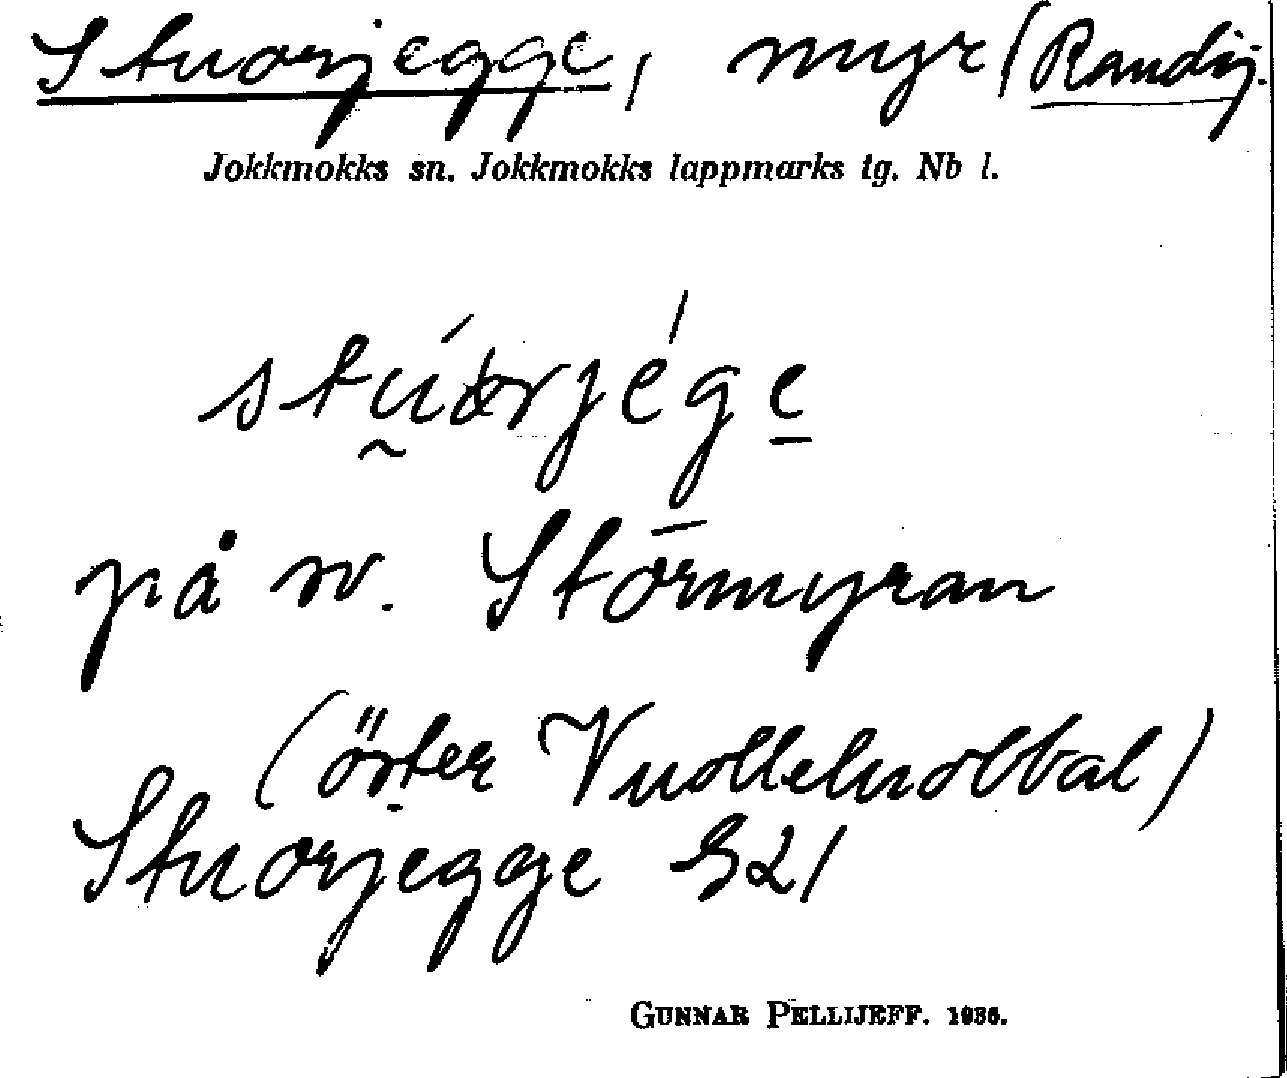 Stuorjegge, myr (Randij.
Jokkmokks sn. Jokkmokks lappmarks tg. Nb l.
stṵórjége̱
på sv. Stōrmyran
(öster Vuolleluobbal)
Stuorjegge S21
GUNNAR PELLIJEFF. 1936.